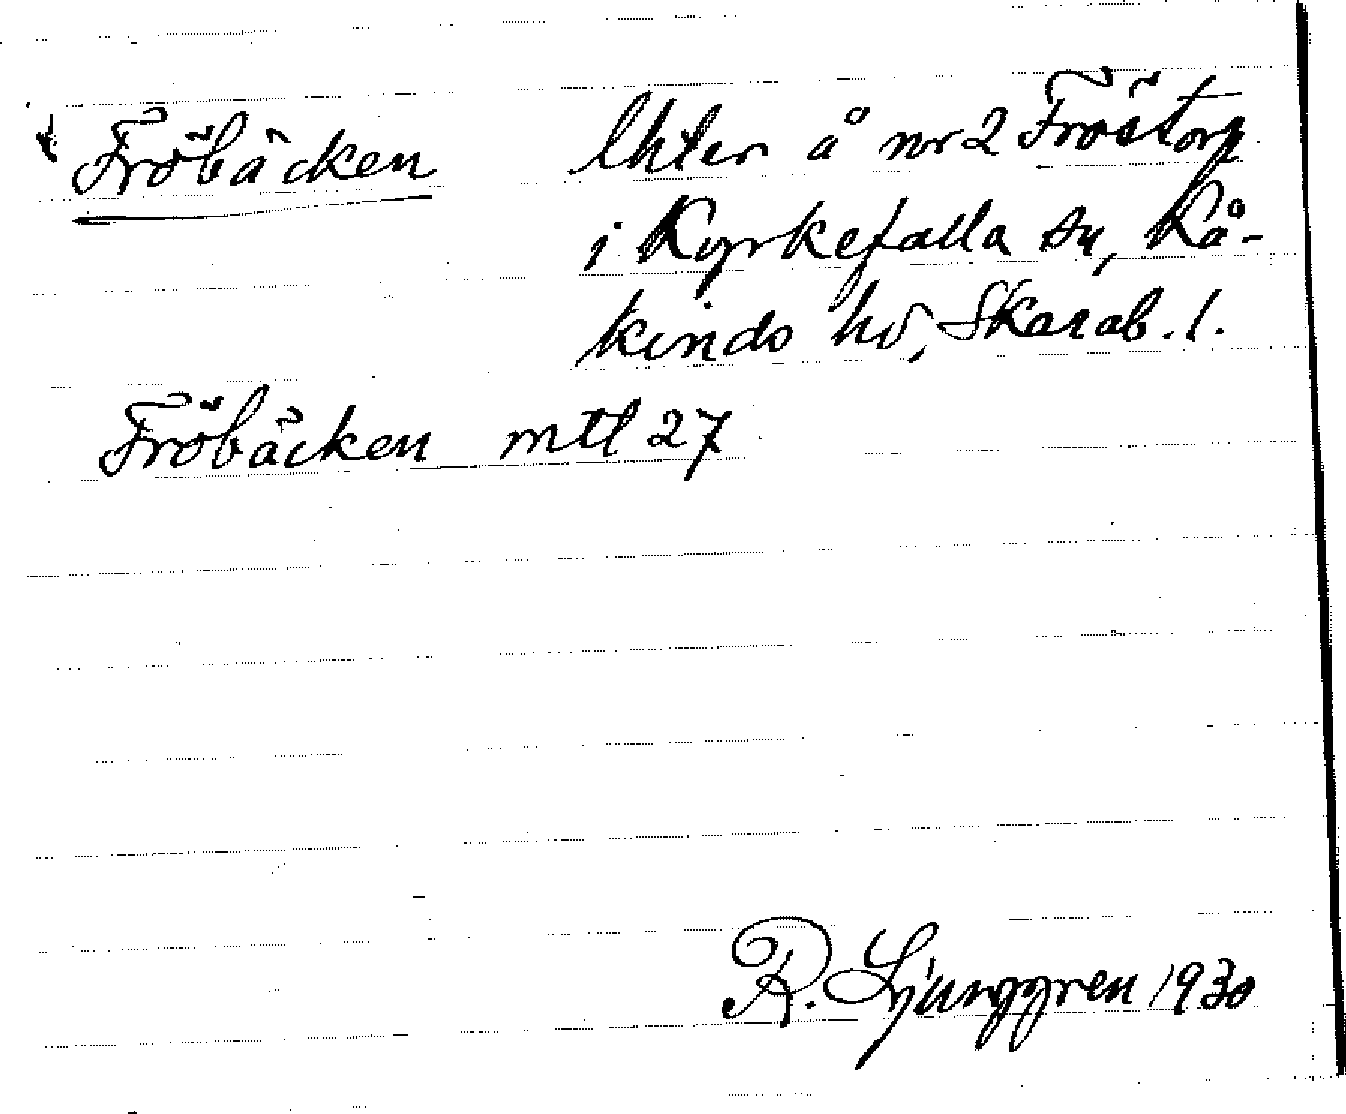 Fröbäcken lhter å nr 2 Fröstorp
i Kyrkefalla sn, Kå-
kinds hd, Skarab. l.
Fröbäcken mtl 27
R. Ljunggren 1930